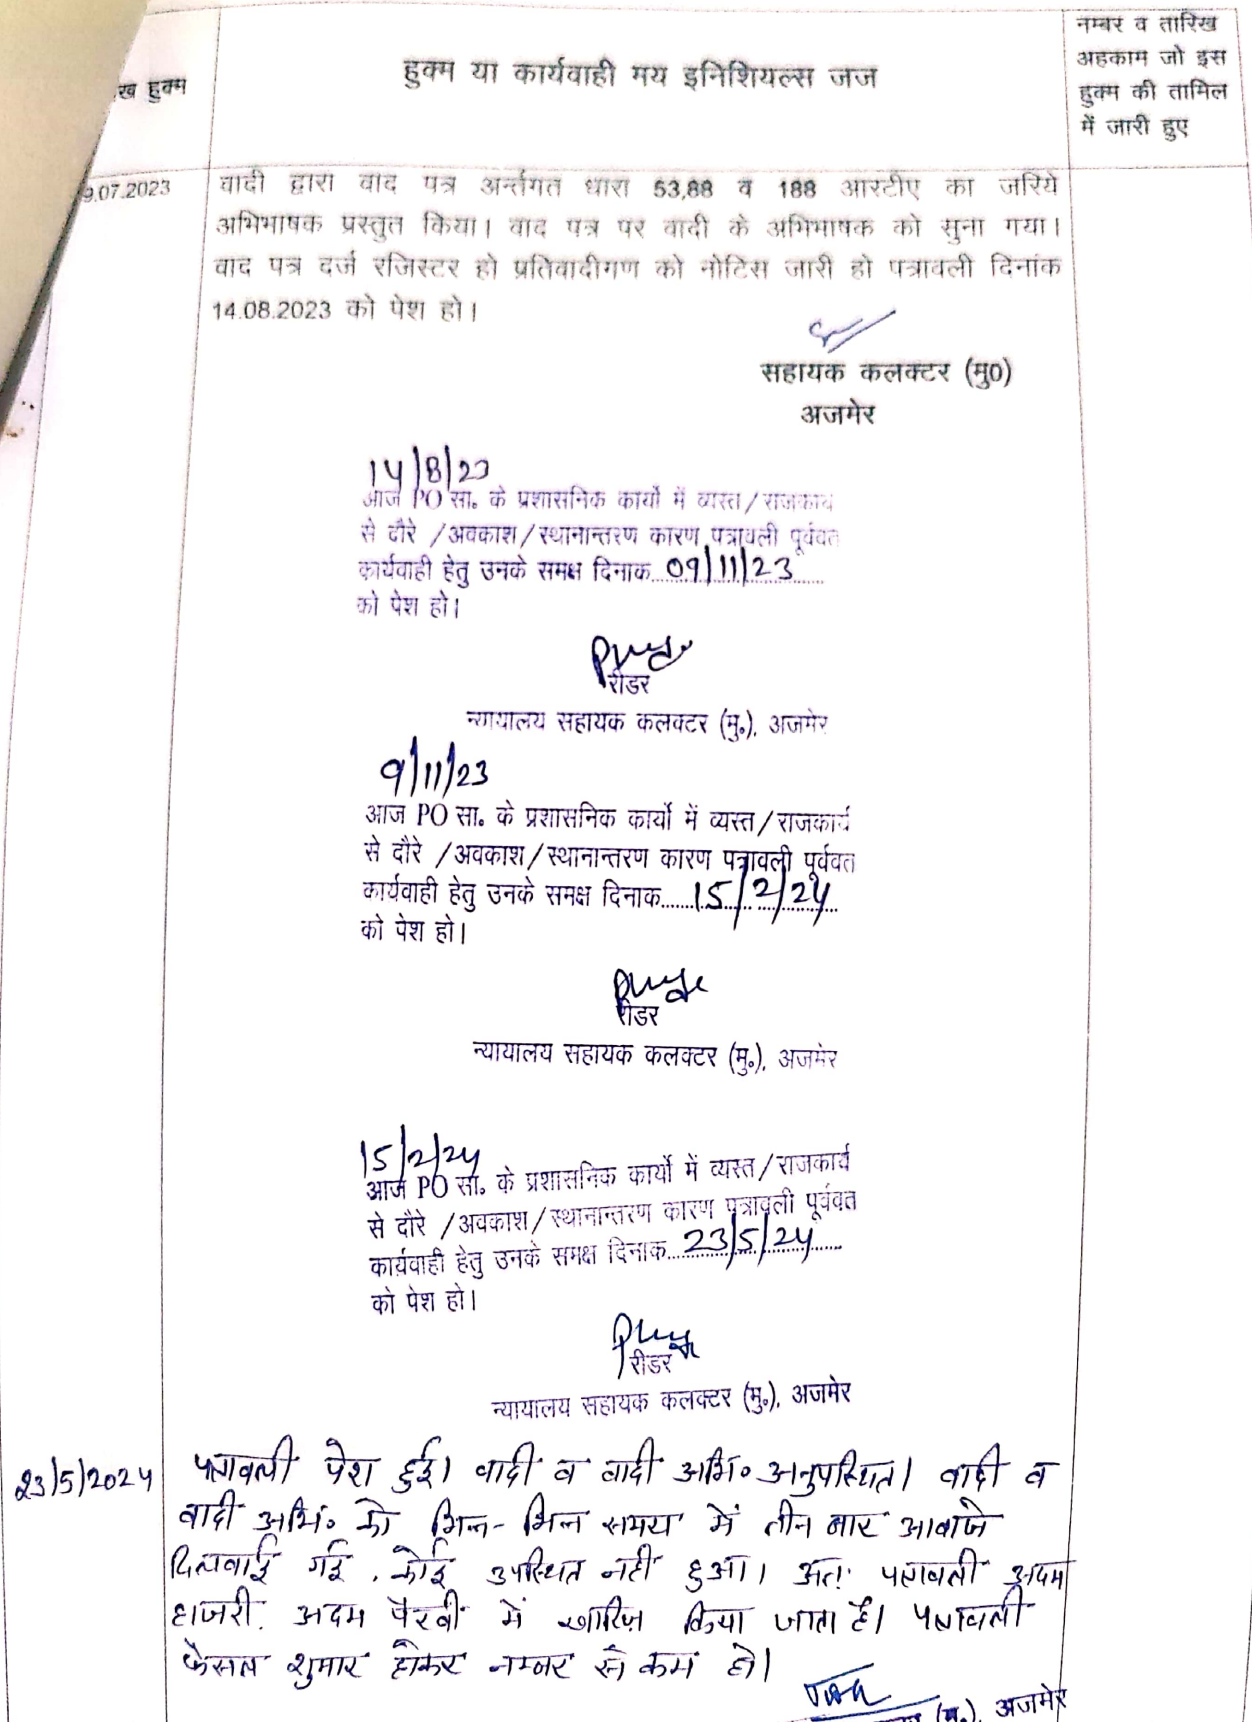 ख हुक्म
हुक्म या कार्यवाही मय इनिशियल्स जज
नम्बर व तारिख
अहकाम जो इस
हुक्म की तामिल
में जारी हुए
9.07.2023
वादी द्वारा वाद पत्र अर्न्तगत धारा 53,88 व 188 आरटीए का जरिये
अभिभाषक प्रस्तुत किया। वाद पत्र पर वादी के अभिभाषक को सुना गया।
वाद पत्र दर्ज रजिस्टर हो प्रतिवादीगण को नोटिस जारी हो पत्रावली दिनांक
14.08.2023 को पेश हो।
सहायक कलक्टर (मु0)
अजमेर
14/8/23
आज PO सा. के प्रशासनिक कार्यो में व्यस्त/राजकार्य
से दौरे /अवकाश/स्थानान्तरण कारण पत्रावली पूर्ववत
कार्यवाही हेतु उनके समक्ष दिनाक...09/11/23......
को पेश हो।
रीडर
न्यायालय सहायक कलक्टर (मु.), अजमेर
9/11/23
आज PO सा. के प्रशासनिक कार्यो में व्यस्त/राजकार्य
से दौरे /अवकाश/स्थानान्तरण कारण पत्रावली पूर्ववत
कार्यवाही हेतु उनके समक्ष दिनाक......15/2/24
को पेश हो।
रीडर
न्यायालय सहायक कलक्टर (मु.), अजमेर
15/2/24
आज PO सा. के प्रशासनिक कार्यो में व्यस्त/राजकार्य
से दौरे /अवकाश/स्थानान्तरण कारण पत्रावली पूर्ववत
कार्यवाही हेतु उनके समक्ष दिनाक...23/5/24......
को पेश हो।
रीडर
न्यायालय सहायक कलक्टर (मु.), अजमेर
23/5/2024
पत्रावली पेश हुई। वादी व वादी अभि० अनुपस्थित। वादी व
वादी अभि० को भिन्न-भिन्न समय में तीन बार आवाजे
दिलवाई गई, कोई उपस्थित नहीं हुआ। अतः पत्रावली अदम
हाजरी, अदम पैरवी में खारिज किया जाता है। पत्रावली
फैसल शुमार होकर नम्बर से कम हो।
(मु.), अजमेर